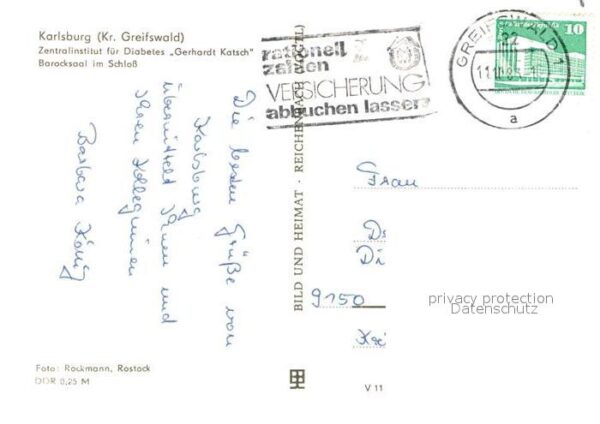 Karlsburg (Kr. Greifswald)
Zentralinstitut für Diabetes „Gerhardt Katsch"
Barocksaal im Schloß
rationell
zahlen
VERSICHERUNG
abbuchen lassen
GREIFSWALD 1
22
a
10
Die besten Grüße von
Karlsburg
übermittelt Ihnen und
Ihren Kolleginnen
Barbara König
BILD UND HEIMAT · REICHENBACH (VOGTL)
Frau
D
Di
9150
privacy protection
Datenschutz
Foto: Rockmann, Rostock
DDR 0,25 M
V 11